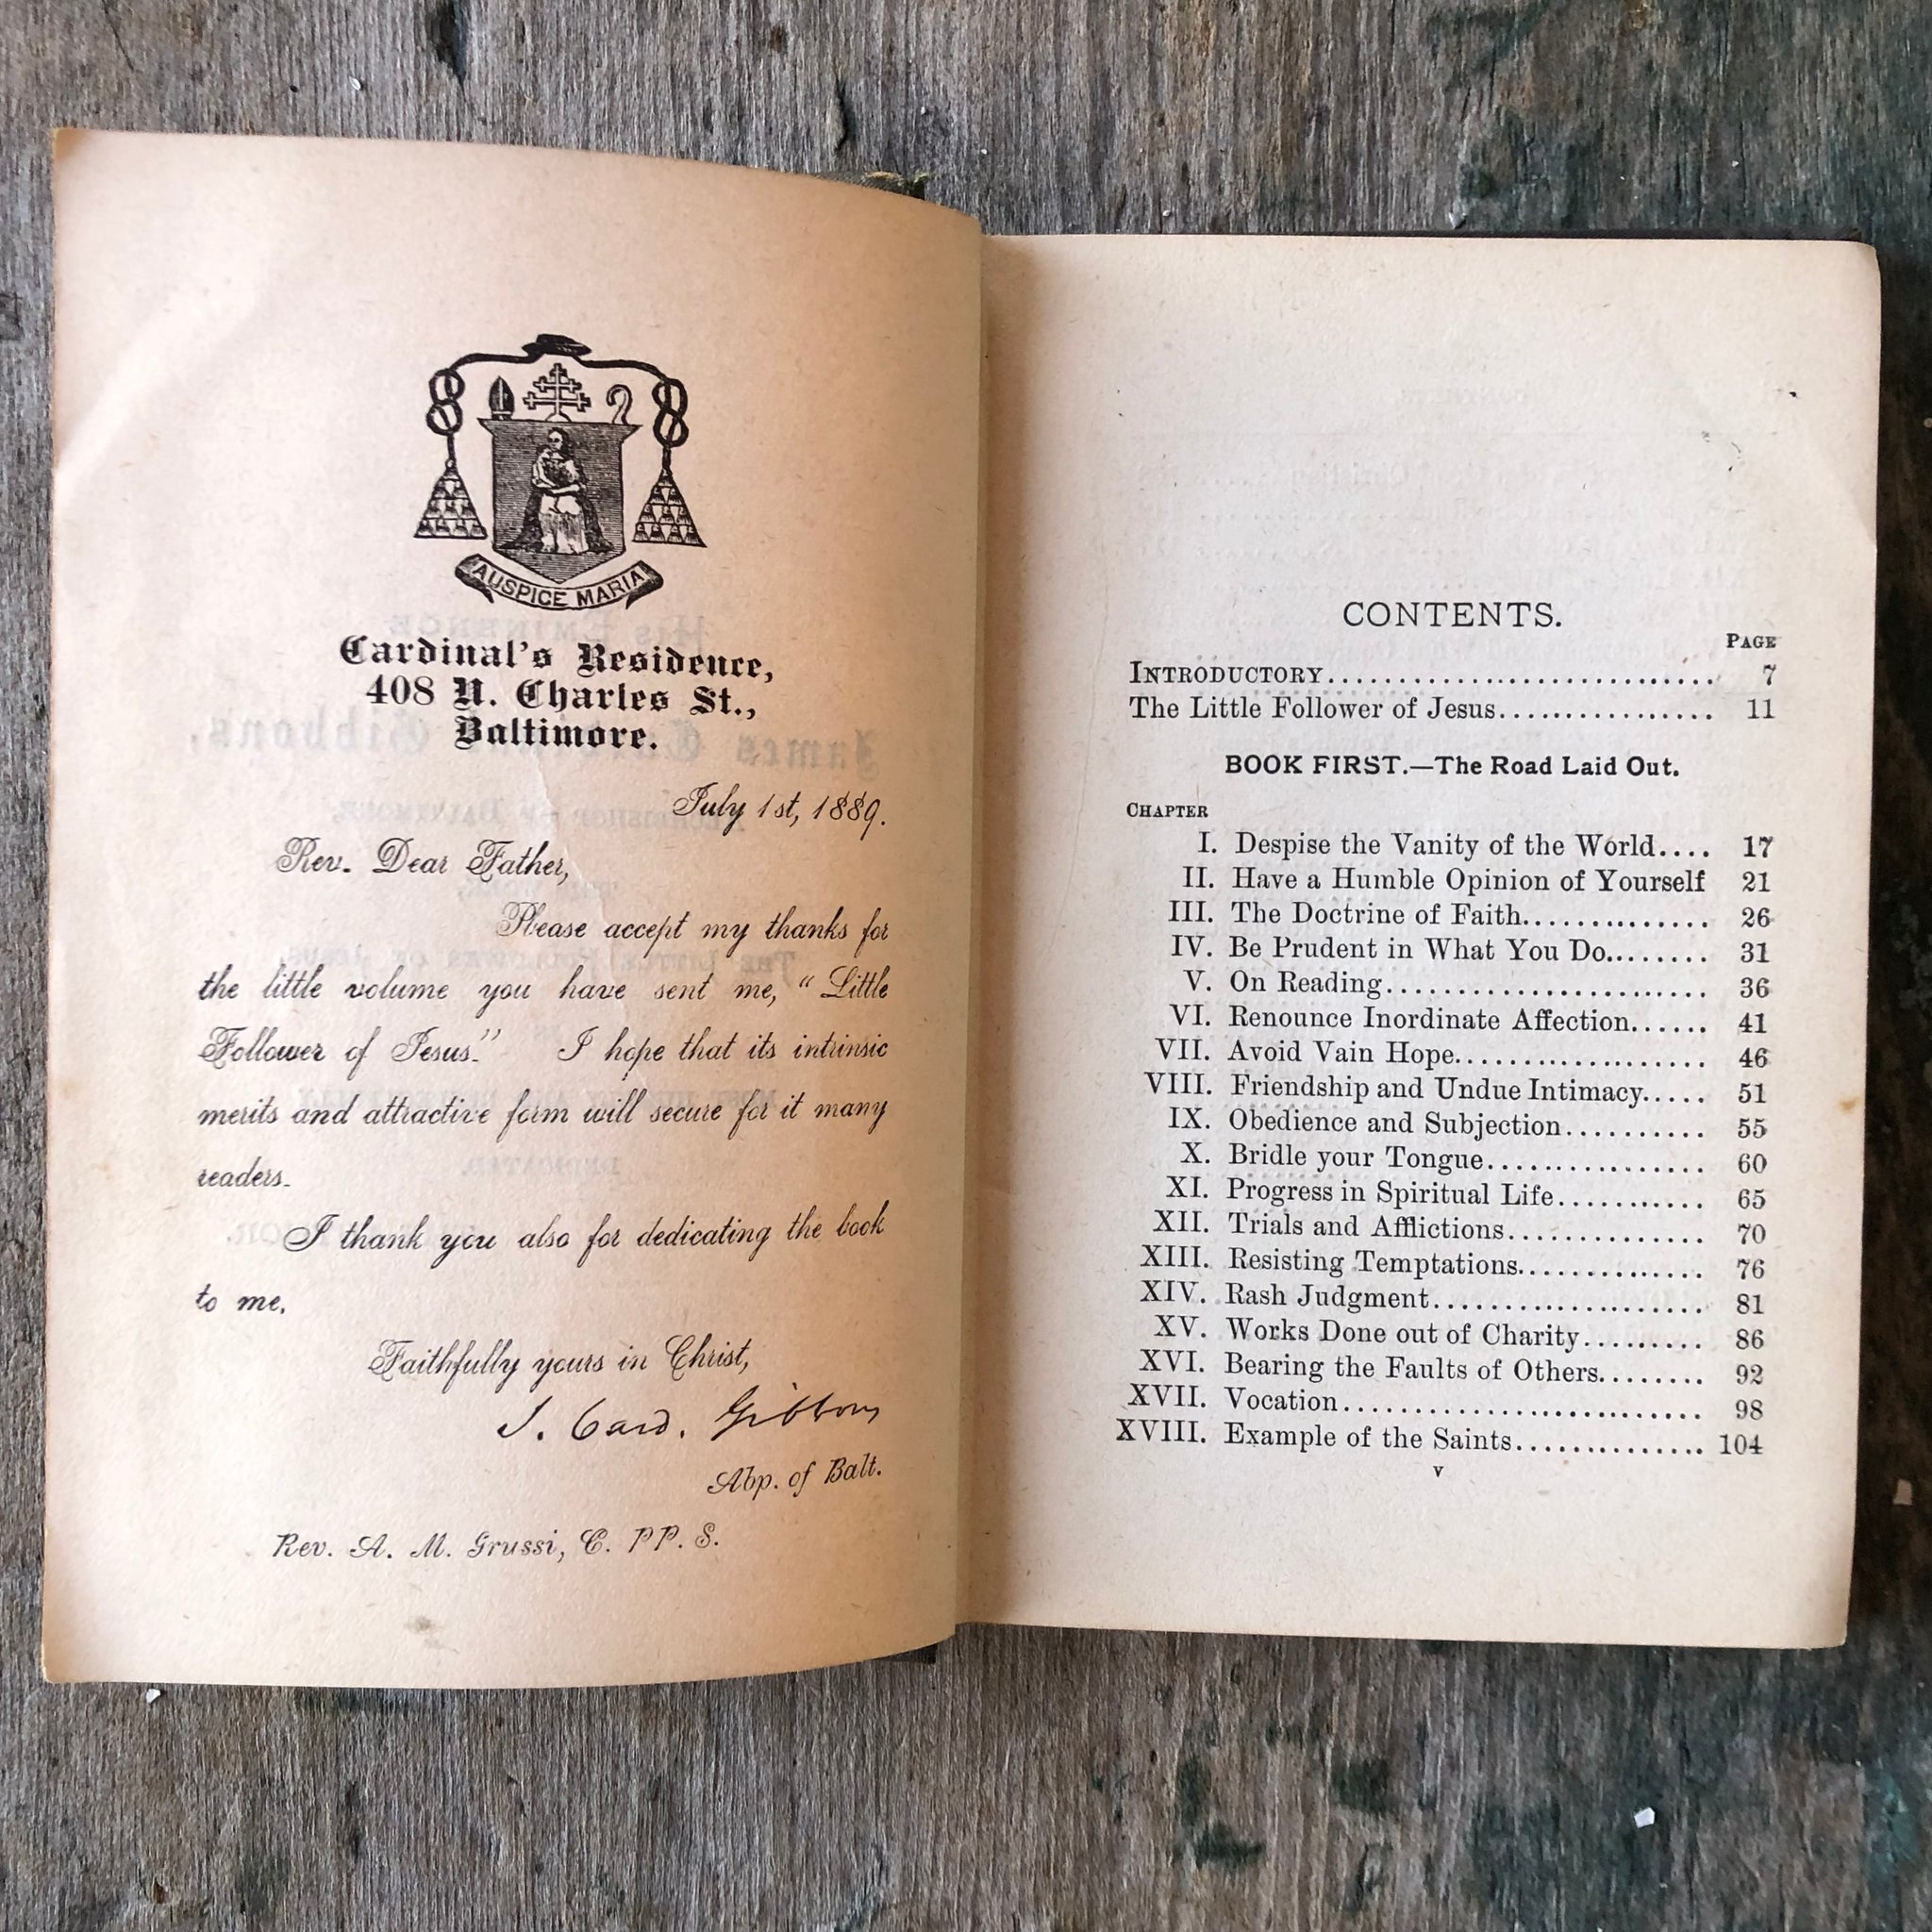 AUSPICE MARIA
Cardinal's Residence,
408 N. Charles St.,
Baltimore.
July 1st, 1889.
Rev. Dear Father,
Please accept my thanks for
the little volume you have sent me, "Little
Follower of Jesus." I hope that its intrinsic
merits and attractive form will secure for it many
readers.
I thank you also for dedicating the book
to me.
Faithfully yours in Christ,
J. Card. Gibbons
Abp. of Balt.
Rev. A. M. Grussi, C. PP. S.
CONTENTS.
PAGE
INTRODUCTORY........................................ 7
The Little Follower of Jesus..................... 11
BOOK FIRST.—The Road Laid Out.
CHAPTER
I. Despise the Vanity of the World.... 17
II. Have a Humble Opinion of Yourself 21
III. The Doctrine of Faith.................. 26
IV. Be Prudent in What You Do........ 31
V. On Reading............................... 36
VI. Renounce Inordinate Affection...... 41
VII. Avoid Vain Hope........................ 46
VIII. Friendship and Undue Intimacy..... 51
IX. Obedience and Subjection........... 55
X. Bridle your Tongue..................... 60
XI. Progress in Spiritual Life............. 65
XII. Trials and Afflictions.................. 70
XIII. Resisting Temptations................. 76
XIV. Rash Judgment......................... 81
XV. Works Done out of Charity.......... 86
XVI. Bearing the Faults of Others........ 92
XVII. Vocation................................... 98
XVIII. Example of the Saints................ 104
v